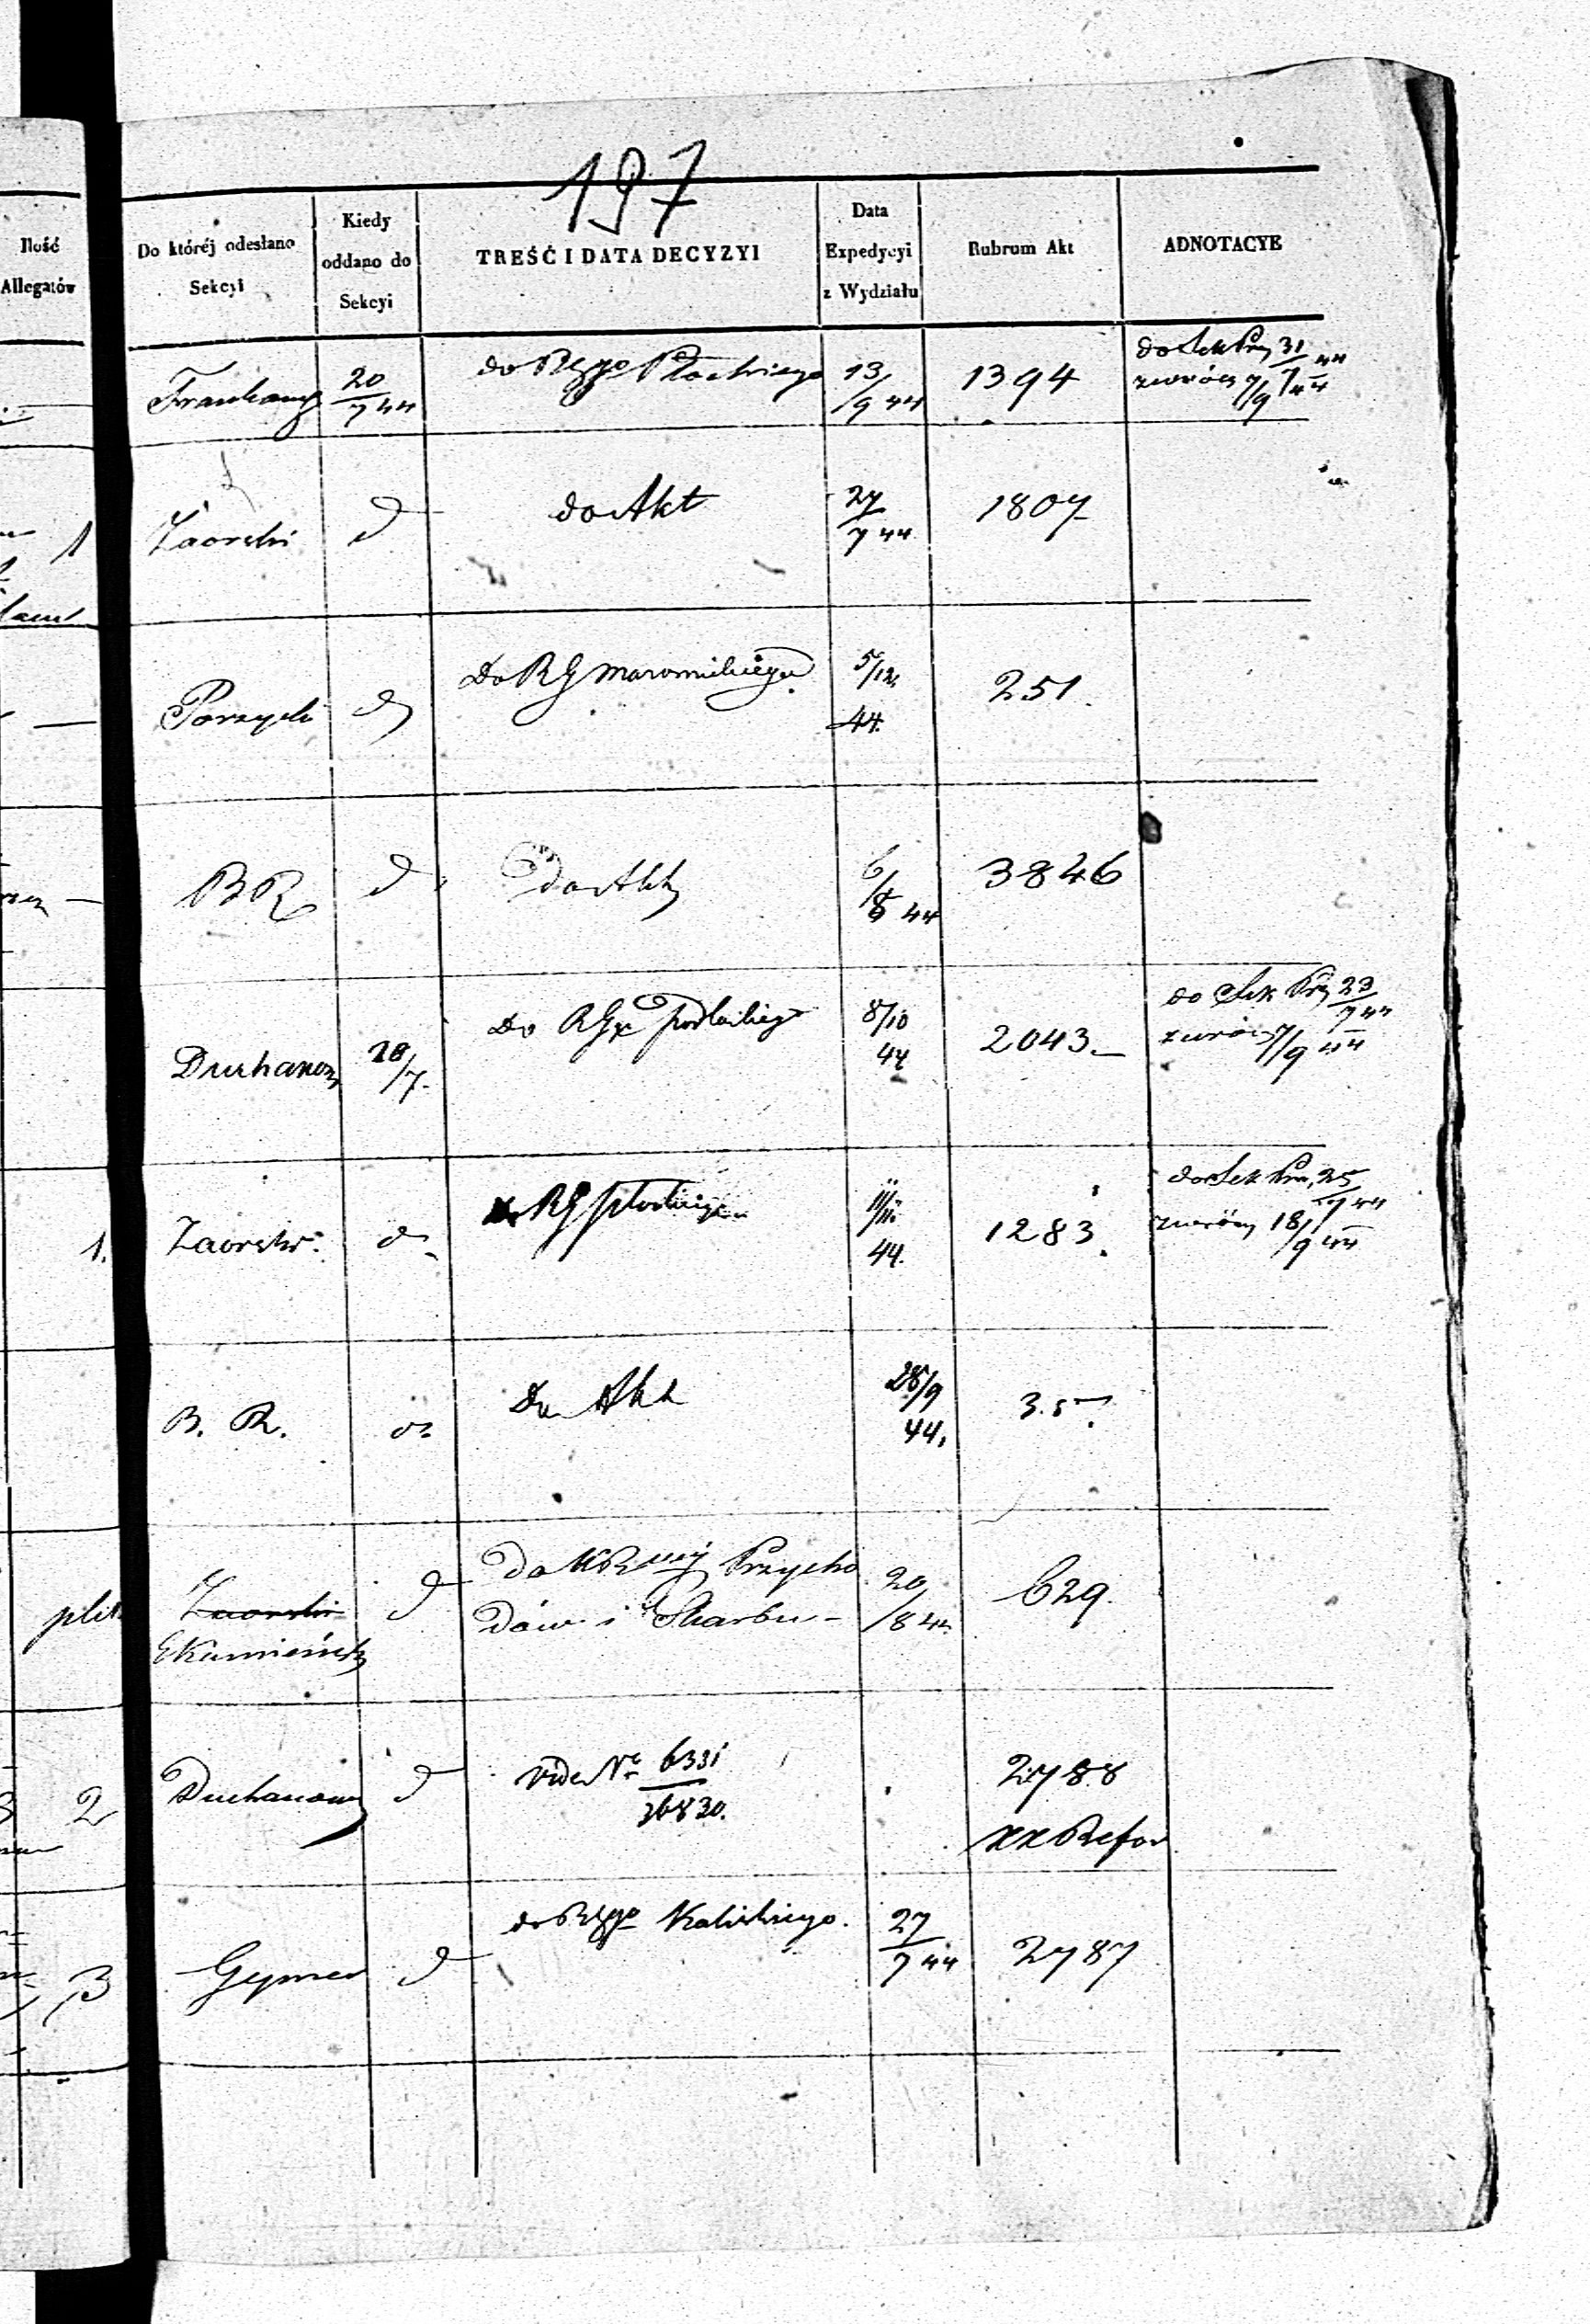 197
Ilość
Allegatów
Do któréj odesłano
Sekcyi
Kiedy
oddano do
Sekcyi
TREŚĆ I DATA DECYZYI
Data
Expedycyi
z Wydziału
Rubrum Akt
ADNOTACYE
20/7 44
do RGgo Płockiego
13/9 44
1394
do Sek Prz 31/7 44
zwróc 7/9 44
1
Zaorski
d
do Akt
27/7 44
1807
Porzycki
d
Do RG
5/12
44.
251.
BR
d
do Akt
6/8 44
3846
Duchanow
20/7.
Do RG podlaskiego
8/10
44
2043.
do Sek Prz 23/7 44
zwróc 7/9 44
1.
Zaorski
d
RG płockiego
11/11
44.
1283.
do Sek Prz 25/7 44
zwróc 18/9 44
B. R.
d
Do Akt
28/9
44.
plik
Zaorski
Kamieńsk
d
Do KR Przycho
dów i Skarbu
20/8 44
629.
2
Duchanow
d
vide No 6331/36830.
2788
xx Refor
3
Geymer
d
do RGgo Kaliskiego.
27/7 44
2787